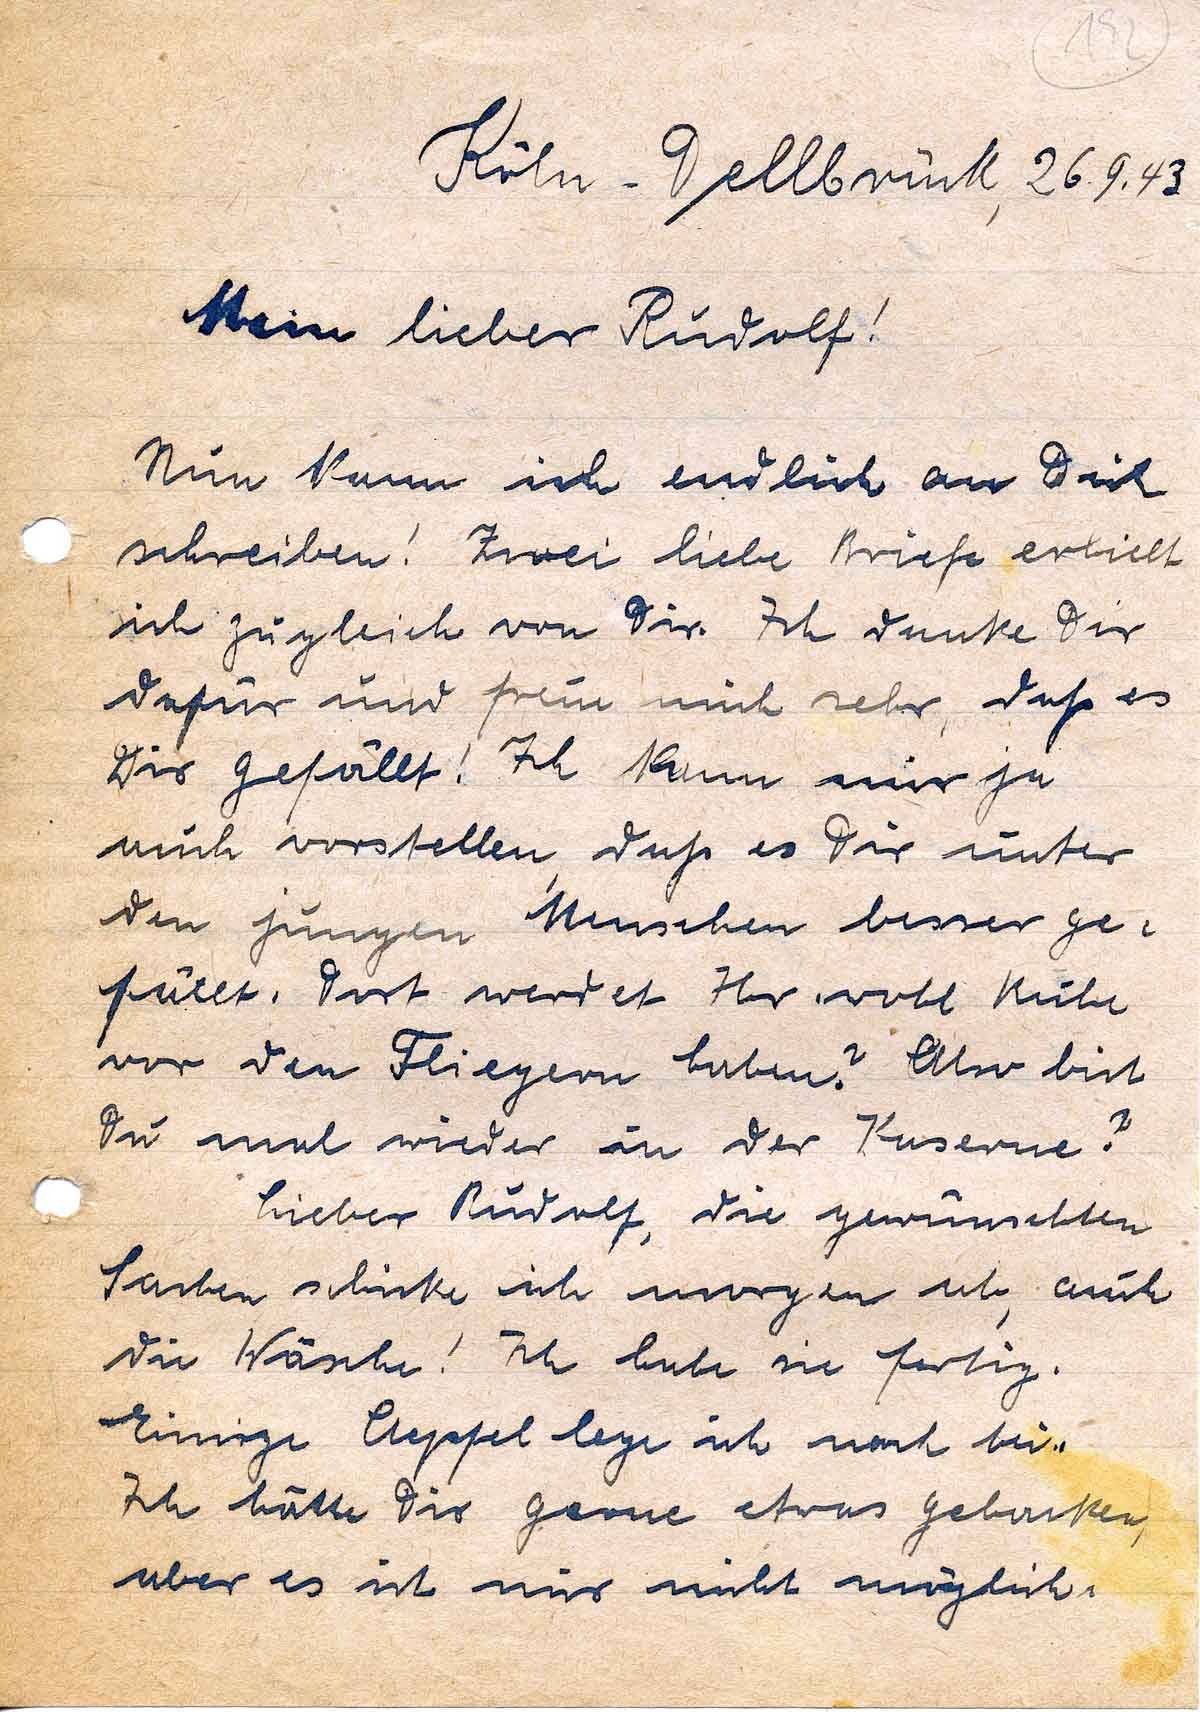 192
Köln-Dellbrück, 26.9.43
Mein lieber Rudolf!
Nun kann ich endlich an Dich
schreiben! Zwei liebe Briefe erhielt
ich zugleich von Dir. Ich danke Dir
dafür und freue mich sehr, daß es
Dir gefällt! Ich kann mir ja
auch vorstellen, daß es Dir unter
den jungen Menschen besser ge-
fällt. Dort werdet Ihr wohl Ruhe
vor den Fliegern haben? Also bist
Du mal wieder in der Kaserne?
Lieber Rudolf, die gewünschten
Sachen schicke ich morgen ab, auch
die Wäsche! Ich habe sie fertig.
Einige Aepfel lege ich noch bei.
Ich hätte Dir gerne etwas gebacken,
aber es ist mir nicht möglich.